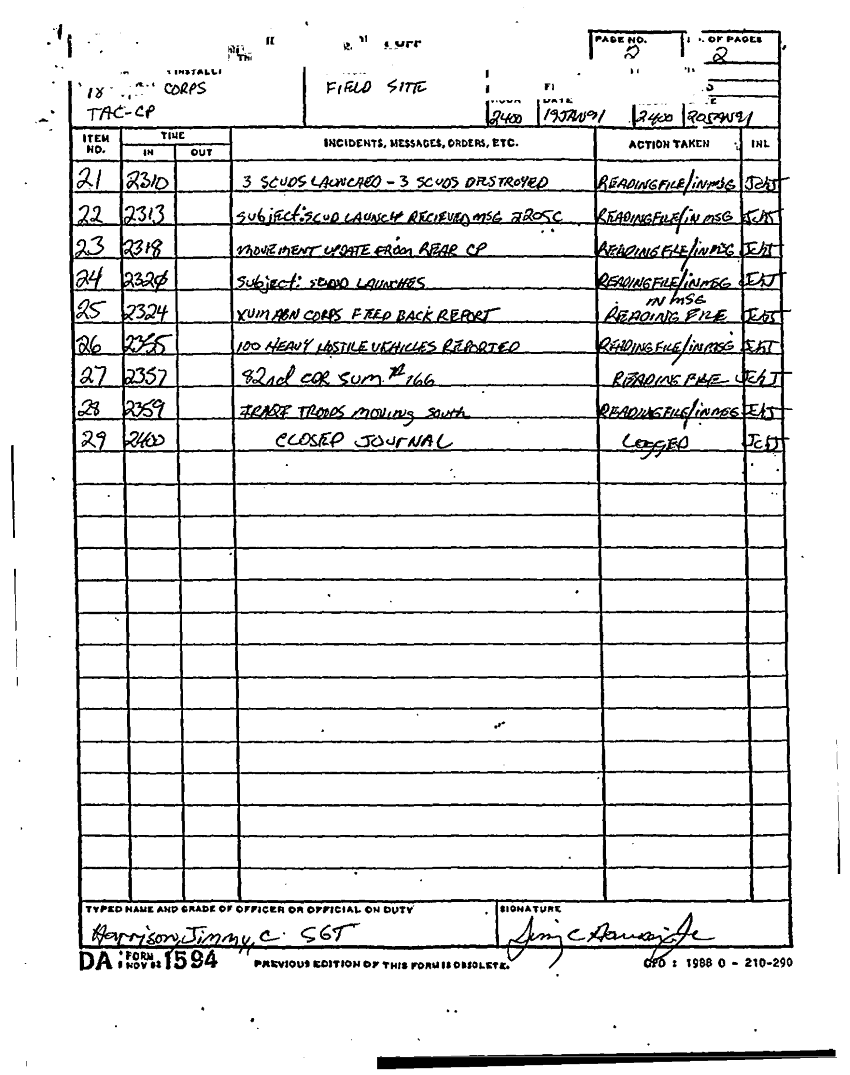 PAGE NO. OF PAGES
2 2
18 CORPS FIELD SITE
TAC-CP 2400 19JAN91 2400 20JAN91
ITEM NO. TIME INCIDENTS, MESSAGES, ORDERS, ETC. ACTION TAKEN INL
IN OUT
21 2310 3 SCUDS LAUNCHED - 3 SCUDS DESTROYED READING FILE/IN MSG JCHJ
22 2313 Subject: SCUD LAUNCH RECIEVED MSG READING FILE/IN MSG JCHJ
23 2318 MOVEMENT UPDATE FROM REAR CP READING FILE/IN MSG JCHJ
24 2320 Subject: SCUD LAUNCHES READING FILE/IN MSG JCHJ
25 2324 XVIII ABN CORPS FEED BACK REPORT IN MSG READING FILE JCHJ
26 2355 100 HEAVY HOSTILE VEHICLES REPORTED READING FILE/IN MSG JCHJ
27 2357 82nd CDR SUM # 166 READING FILE JCHJ
28 2359 TROOPS MOVING South READING FILE/IN MSG JCHJ
29 2400 CLOSED JOURNAL LOGGED JCHJ
TYPED NAME AND GRADE OF OFFICER OR OFFICIAL ON DUTY SIGNATURE
Harrison, Jimmy, C. SGT
DA FORM 1594 PREVIOUS EDITION OF THIS FORM IS OBSOLETE. GPO : 1988 O - 210-290
NOV 62